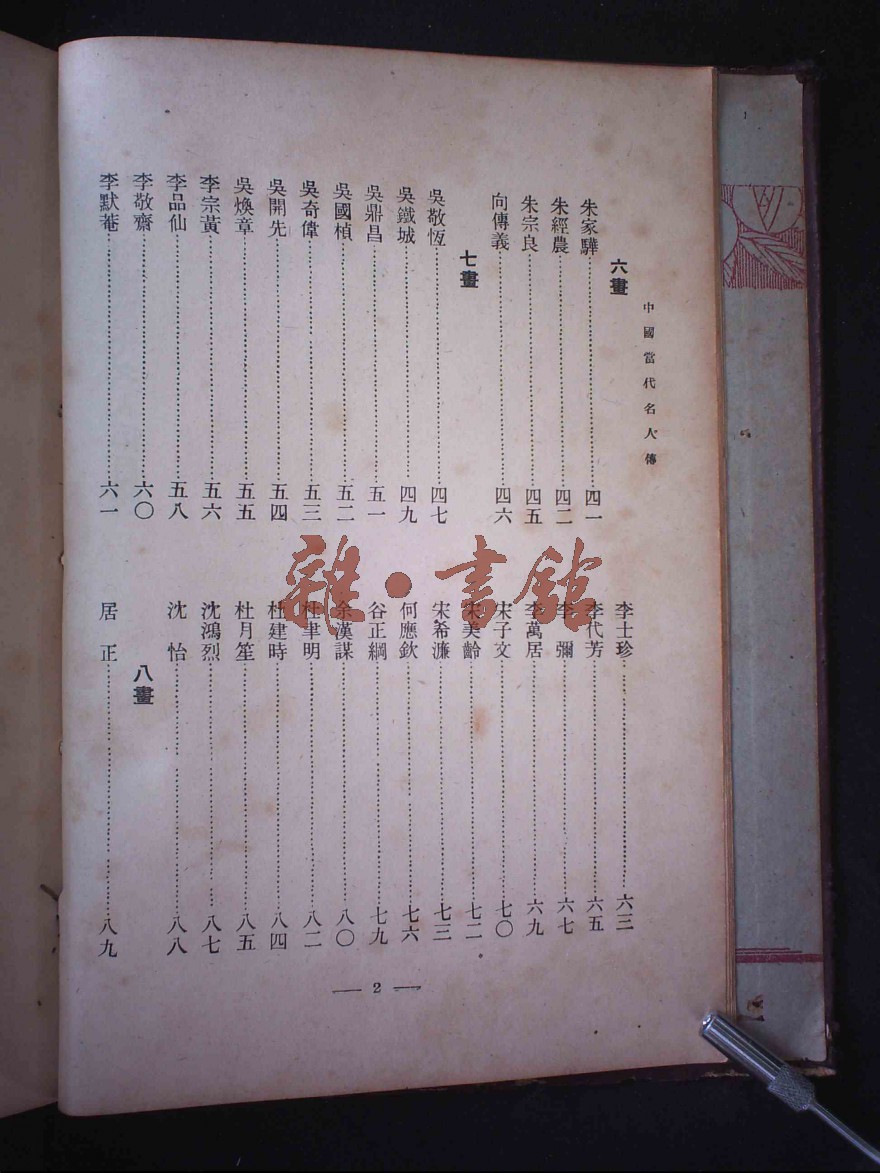 中國當代名人傳
六畫
朱家驊……四一
朱經農……四二
朱宗良……四五
向傳義……四六
七畫
吳敬恆……四七
吳鐵城……四九
吳鼎昌……五一
吳國楨……五二
吳奇偉……五三
吳開先……五四
吳煥章……五五
李宗黃……五六
李品仙……五八
李敬齋……六〇
李默菴……六一
李士珍……六三
李代芳……六五
李彌……六七
李萬居……六九
宋子文……七〇
宋美齡……七二
宋希濂……七三
何應欽……七六
谷正綱……七九
余漢謀……八〇
杜聿明……八二
杜建時……八四
杜月笙……八五
沈鴻烈……八七
沈怡……八八
八畫
居正……八九
— 2 —
雜·書館